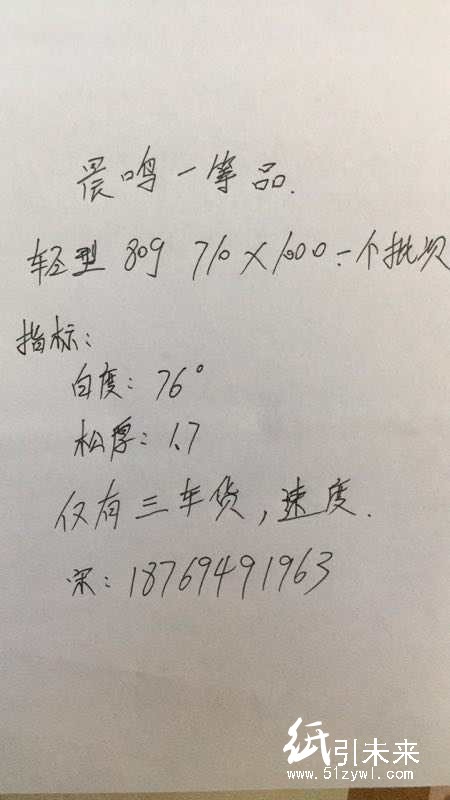 晨鸣一等品.
轻型 80g 710×1000.一个批次
指标:
白度: 76°
松厚: 1.7
仅有三车货,速度.
宋: 18769491963
纸引未来
www.51zywl.com